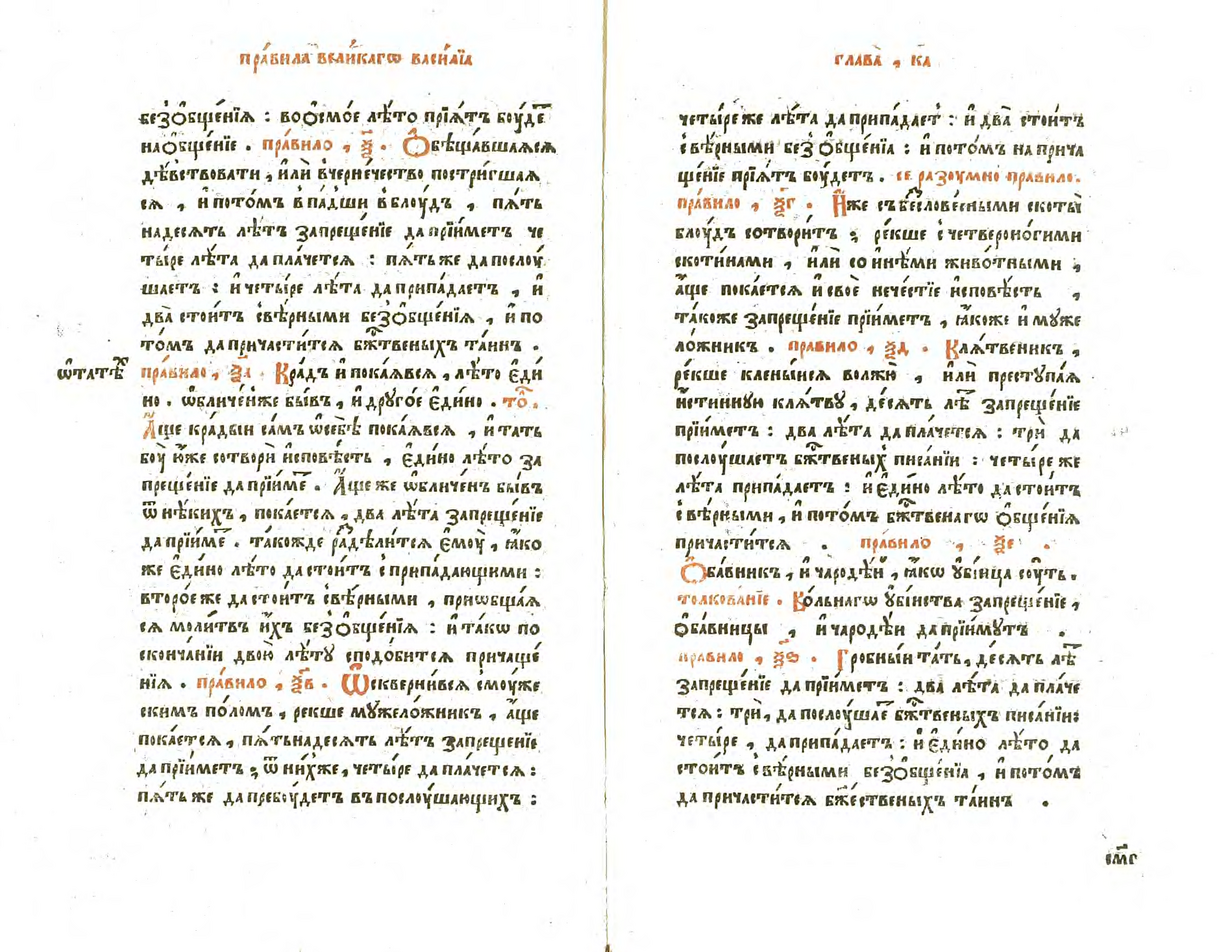 пра́вила вели́кагѡ васи́лїа
без̾ ѻ҆бще́нїѧ : во ѻ҆смо́е лѣ́то прїѧ́тъ боу́де
на ѻ҆бще́нїе . пра́вило , ѯ҃ . Ѻ҆бѣща́вшаѧсѧ
дѣ́вствовати , и҆лѝ в̾черне́чество постри́гшаѧ
сѧ , и҆ пото́мъ в̾па́дши в̾блоу́дъ , пѧ́ть
на́десѧть лѣ́тъ запреще́нїе да прїи́метъ че
ты́ре лѣ́та да пла́четсѧ : пѧ́ть же да послоу́
шаетъ : и҆ четы́ре лѣ́та да припа́даетъ , и҆
два̀ стои́тъ с̾вѣ́рными без̾ ѻ҆бще́нїѧ , и҆ по
то́мъ да причасти́тсѧ бж҃твеныхъ та́инъ .
ѡ҆ татѣ́х
пра́вило , ѯ҃а . Кра́дъ и҆ пока́ѧвсѧ , лѣ́то є҆ди
но . ѡ҆бличе́нже бы́въ , и҆ друго́е є҆ди́но . то́л .
А҆́ще кра́дыи са́мъ ѡ҆ себѣ̀ пока́ѧвсѧ , и҆ тать
боу̀ ю҆́же сотворѝ и҆сповѣ́сть , є҆ди́но лѣ́то за
преще́нїе да прїи́ме . А҆́ще же ѡ҆бличе́нъ бы́въ
ѿ нѣ́кихъ , пока́етсѧ , два лѣ́та запреще́нїе
да прїи́ме . та́кожде раздѣли́тсѧ є҆моу̀ , ꙗ҆́ко
же є҆ди́но лѣ́то да стои́тъ с̾припа́дающими :
второ́е же да стои́тъ с̾вѣ́рными , приѡбща́ѧ
сѧ моли́твъ и҆́хъ без̾ ѻ҆бще́нїѧ : и҆ та́кѡ по
сконча́нїи двою̀ лѣ́ту сподо́битсѧ причаще́
нїѧ . пра́вило , ѯ҃в . Ѡ҆скверни́всѧ с̾моу́же
скимъ по́ломъ , ре́кше мужело́жникъ , а҆́ще
пока́етсѧ , пѧ́тьна́десѧть лѣ́тъ запреще́нїе
да прїи́метъ ; ѿ ни́хже , четы́ре да пла́четсѧ :
пѧ́ть же да пребоу́детъ в̾послоу́шающихъ :
глава̀ , к҃а
четы́ре же лѣ́та да припа́даетъ : и҆ два̀ стои́тъ
с̾вѣ́рными без̾ ѻ҆бще́нїа : и҆ пото́мъ на прича
ще́нїе прїѧ́тъ боу́детъ . се разоу́мно пра́вило .
пра́вило , ѯ҃г . И҆́же съ бесловесными скоты̀
блоу́дъ сотвори́тъ ; ре́кше с̾четвероно́гими
скоти́нами , и҆лѝ со и҆нѣ́ми живо́тными ,
а҆́ще пока́етсѧ и҆ своѐ нече́стїе и҆сповѣ́сть ,
та́коже запреще́нїе прїи́метъ , ꙗ҆́коже и҆ му́же
ло́жникъ . пра́вило , ѯ҃д . Клѧ́твеникъ ,
ре́кше клены́исѧ волжю̀ , и҆лѝ преступа́ѧ
и҆́стинную клѧ́тву , де́сѧть лѣ́ запреще́нїе
прїи́метъ : два лѣ́та да пла́четсѧ : трѝ да
послоу́шаетъ бж҃твеныхъ писа́нїи : четы́ре же
лѣ́та припа́даетъ : и҆ є҆ди́но лѣ́то да стои́тъ
с̾вѣ́рными , и҆ пото́мъ бж҃твенагѡ ѻ҆бще́нїѧ
причасти́тсѧ . пра́вило , ѯ҃е .
Ѻ҆ба́вникъ , и҆ чародѣ́и , ꙗ҆́кѡ ᲂу҆бі́ица соу́ть .
толкова́нїе . Во́льнагѡ ᲂу҆бі́иства запреще́нїе ,
ѻ҆ба́вницы , и҆ чародѣ́и да прїи́мутъ .
пра́вило , ѯ҃ѕ . Гро́бныи та́ть , де́сѧть лѣ́
запреще́нїе да прїи́метъ : два лѣ́та да пла́че
тсѧ : трѝ , да послоу́шае бж҃твеныхъ писа́нїи :
четы́ре , да припа́даетъ : и҆ є҆ди́но лѣ́то да
стои́тъ с̾вѣ́рными без̾ ѻ҆бще́нїа , и҆ пото́мъ
да причасти́тсѧ бж҃ественыхъ та́инъ .
см҃г